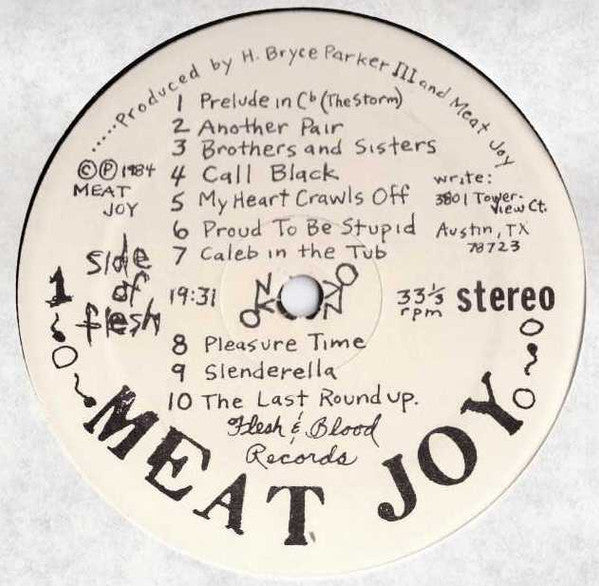 .....Produced by H. Bryce Parker III and Meat Joy
1 Prelude in Cb (The Storm)
2 Another Pair
3 Brothers and Sisters
4 Call Black
5 My Heart Crawls Off
6 Proud To Be Stupid
7 Caleb in the Tub
©℗ 1984
MEAT
JOY
write:
3801 Tower-
view Ct.
Austin, TX
78723
side
of
flesh
1
19:31
33⅓
rpm
stereo
8 Pleasure Time
9 Slenderella
10 The Last Round up.
Flesh & Blood
Records
MEAT JOY